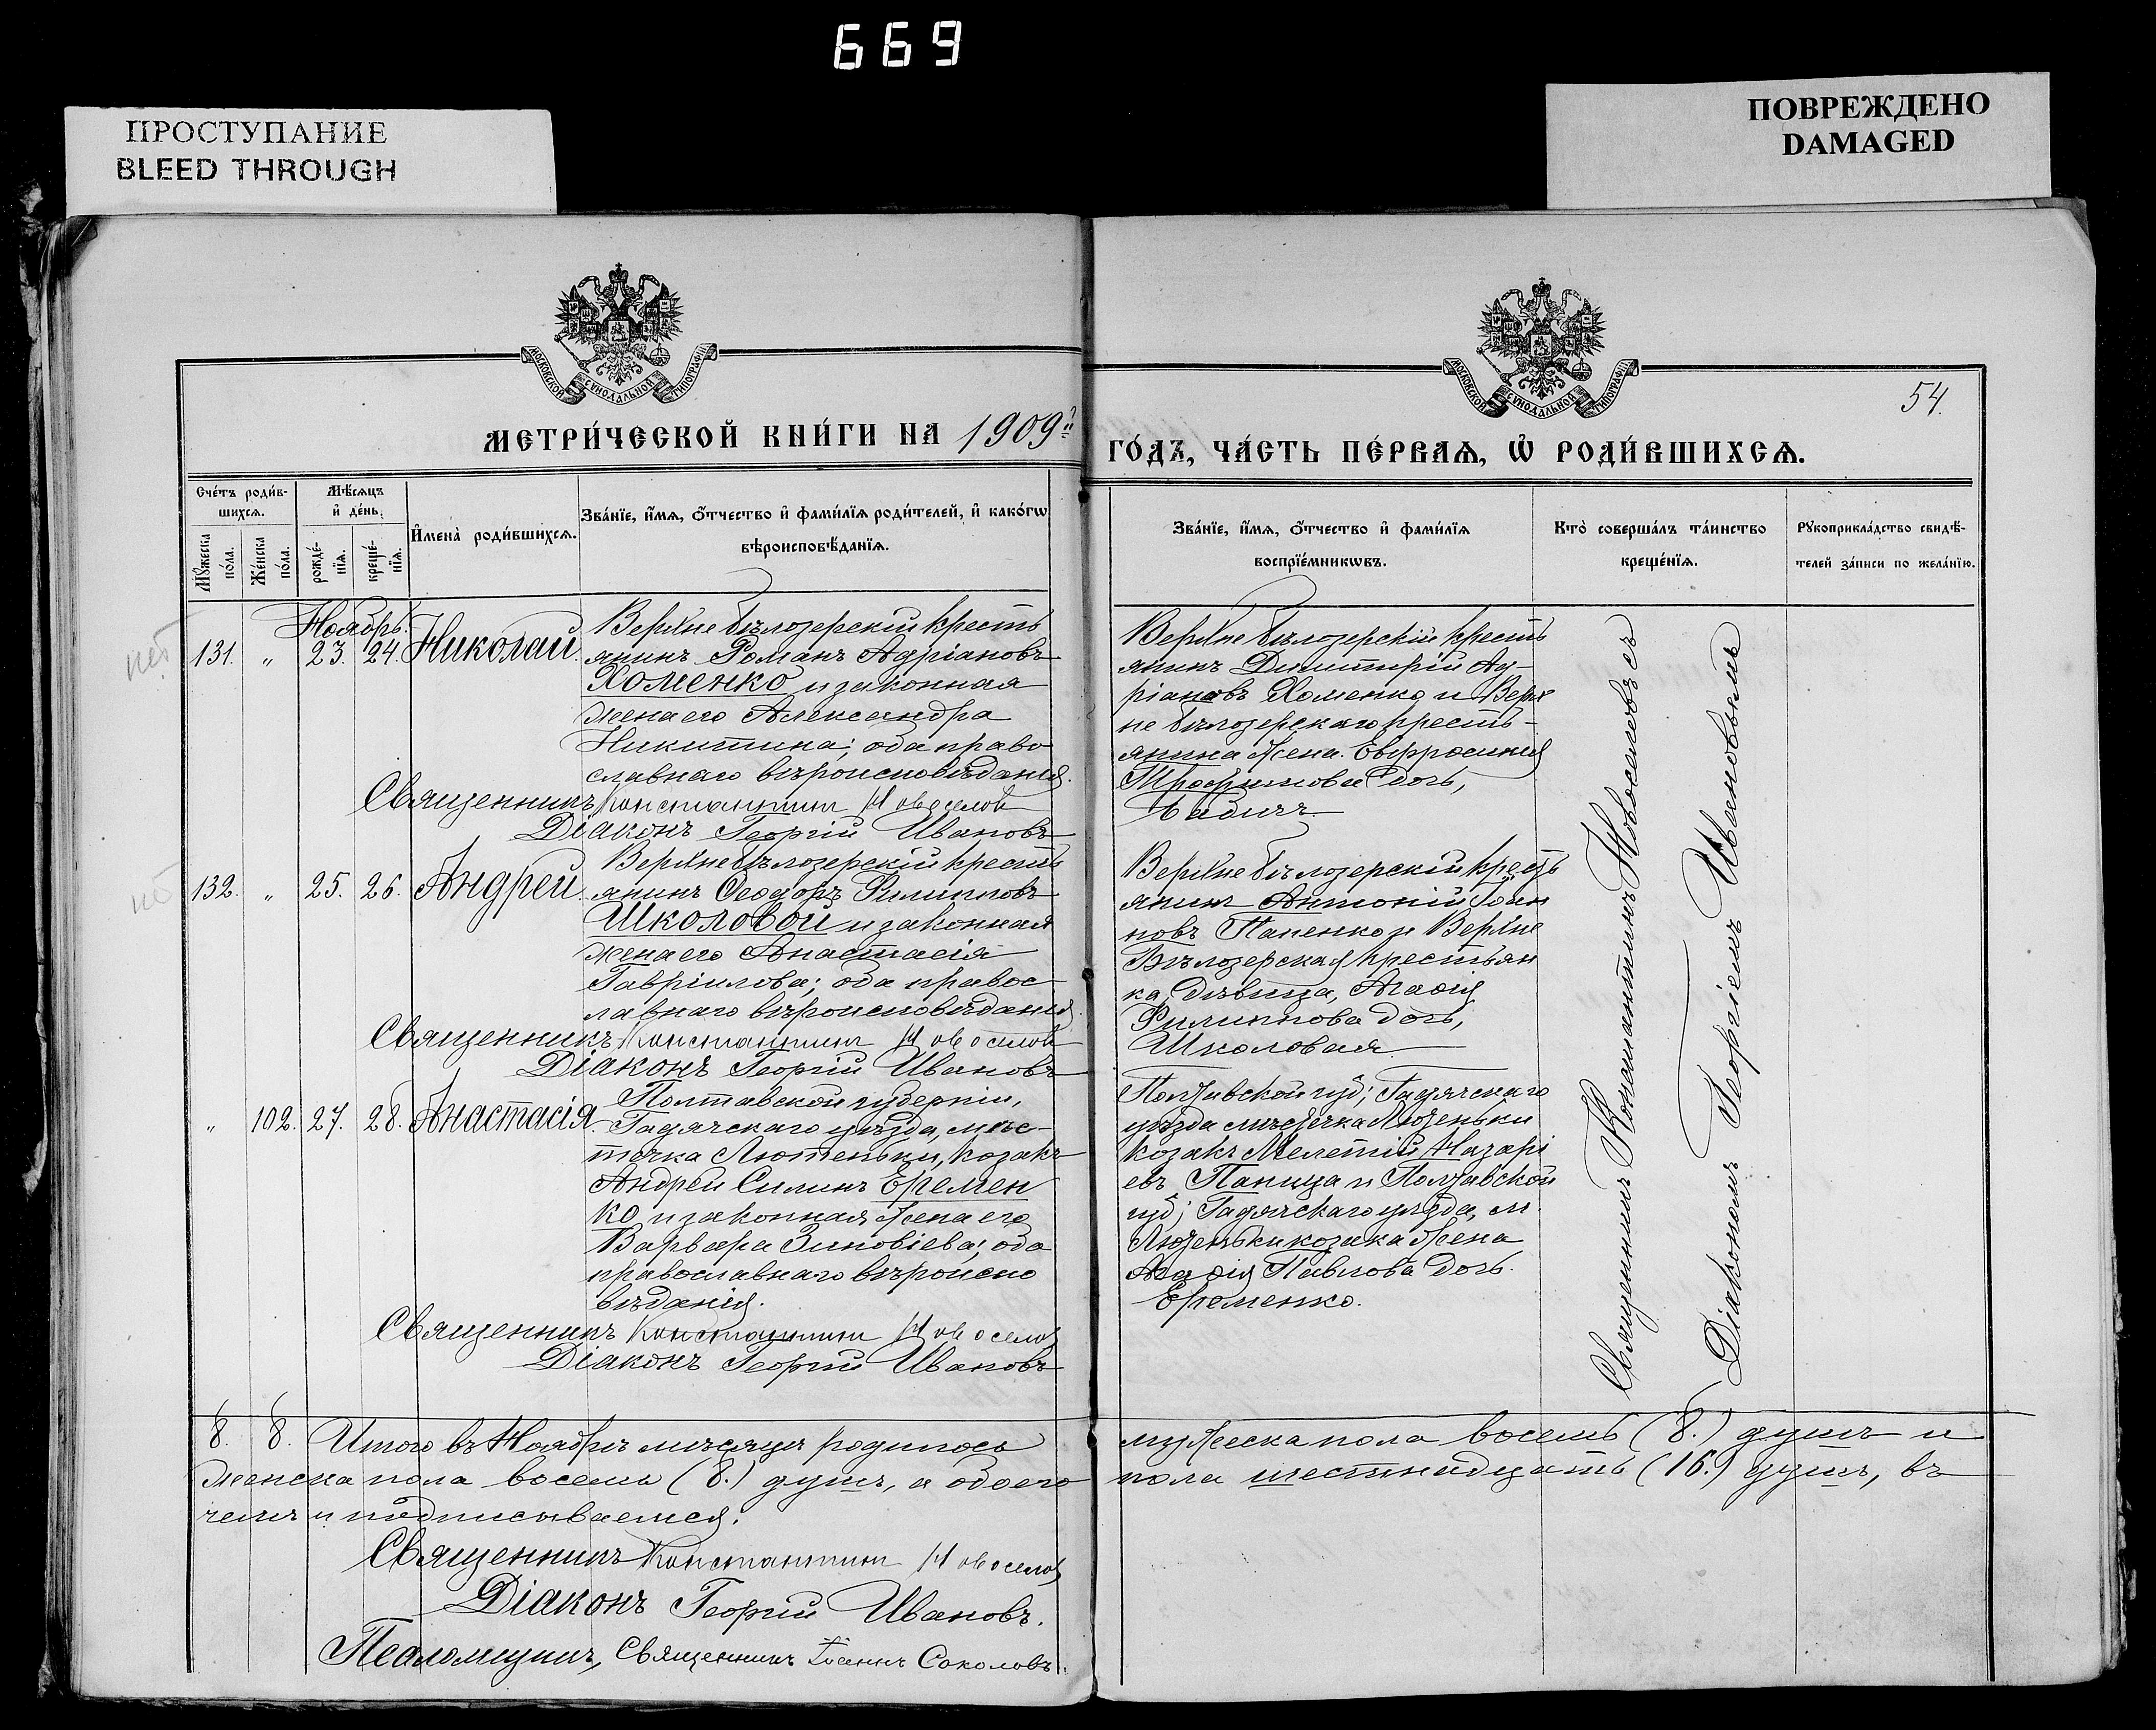 669
ПРОСТУПАНИЕ
BLEED THROUGH
ПОВРЕЖДЕНО
DAMAGED
МОСКОВСКОЙ СѴНОДАЛЬНОЙ ТИПОГРАФІИ
МОСКОВСКОЙ СѴНОДАЛЬНОЙ ТИПОГРАФІИ
54.
МЕТРИ́ЧЕСКОЙ КНИ́ГИ НА 1909й
ГО́ДЪ, ЧА́СТЬ ПЕ́РВАѦ, Ѡ҆ РОДИ́ВШИХСѦ.
Сче́тъ роди́в-
шихсѧ.
Мꙋ́жеска по́ла.
Же́нска по́ла.
Мѣ́сѧцъ
и҆ де́нь.
рожде́-
нїѧ.
креще́-
нїѧ.
И҆мена̀ роди́вшихсѧ.
Зва́нїе, и҆́мѧ, ѻ҆́тчество и҆ фами́лїѧ роди́телей, и҆ како́гѡ
вѣроисповѣ́данїѧ.
Зва́нїе, и҆́мѧ, ѻ҆́тчество и҆ фами́лїѧ
воспрїе́мникѡвъ.
Кто̀ соверша́лъ та́инство
креще́нїѧ.
Рꙋкоприкла́дство свидѣ́-
телей за́писи по жела́нїю.
Ноябрь.
нет
131. „ 23. 24. Николай.
Верхнебѣлозерскій кресть
янинъ Романъ Адріановъ
Хоменко и законная
жена его Александра
Никитина; оба право
славнаго вѣроисповѣданія.
Священникъ Константин Новоселов
Діаконъ Георгій Ивановъ
Верхнебѣлозерскій кресть
янинъ Димитрій Ад-
ріановъ Хоменко и Верх
небѣлозерскаго кресть-
янина жена Евфросинія
Трофимова дочь,
Бабичъ.
132. „ 25. 26. Андрей
Верхнебѣлозерскій кресть
янинъ Ѳеодоръ Филипповъ
Школовой и законная
жена его Анастасія
Гавріилова; оба правос
лавнаго вѣроисповѣданія.
Священникъ Константин Новоселов
Діаконъ Георгій Ивановъ
Верхнебѣлозерскій кресть
янинъ Антоній Іоан
новъ Папенко и Верхне
Бѣлозерская крестьян
ка, дѣвица, Агаѳія
Филиппова дочь,
Школовая.
„ 102. 27. 28. Анастасія
Полтавской губерніи,
Гадячскаго уѣзда, мѣс-
течка Лютеньки, козакъ
Андрей Силинъ Еремен
ко и законная жена его
Варвара Зиновіева; оба
православнаго вѣроиспо
вѣданія.
Священникъ Константин Новоселов
Діаконъ Георгій Ивановъ
Полтавской губ; Гадячскаго
уѣзда мѣстечка Лютеньки
козакъ Мелетій Назарі
евъ Паница и Полтавской
губ; Гадячскаго уѣзда, м.
Лютеньки козака жена
Агаѳія Павлова дочь
Еременко.
Священникъ Константинъ Новоселовъ съ
Діакономъ Георгіемъ Ивановымъ
8. 8. Итого въ Ноябрѣ мѣсяцѣ родилось мужеска пола восемь (8.) душъ и
женска пола восемь (8.) душъ, а обоего пола шестнадцать (16.) душъ, въ
чемъ и подписываемся:
Священникъ Константин Новоселов
Діаконъ Георгій Ивановъ.
Псаломщикъ, Священникъ Іоаннъ Соколовъ.